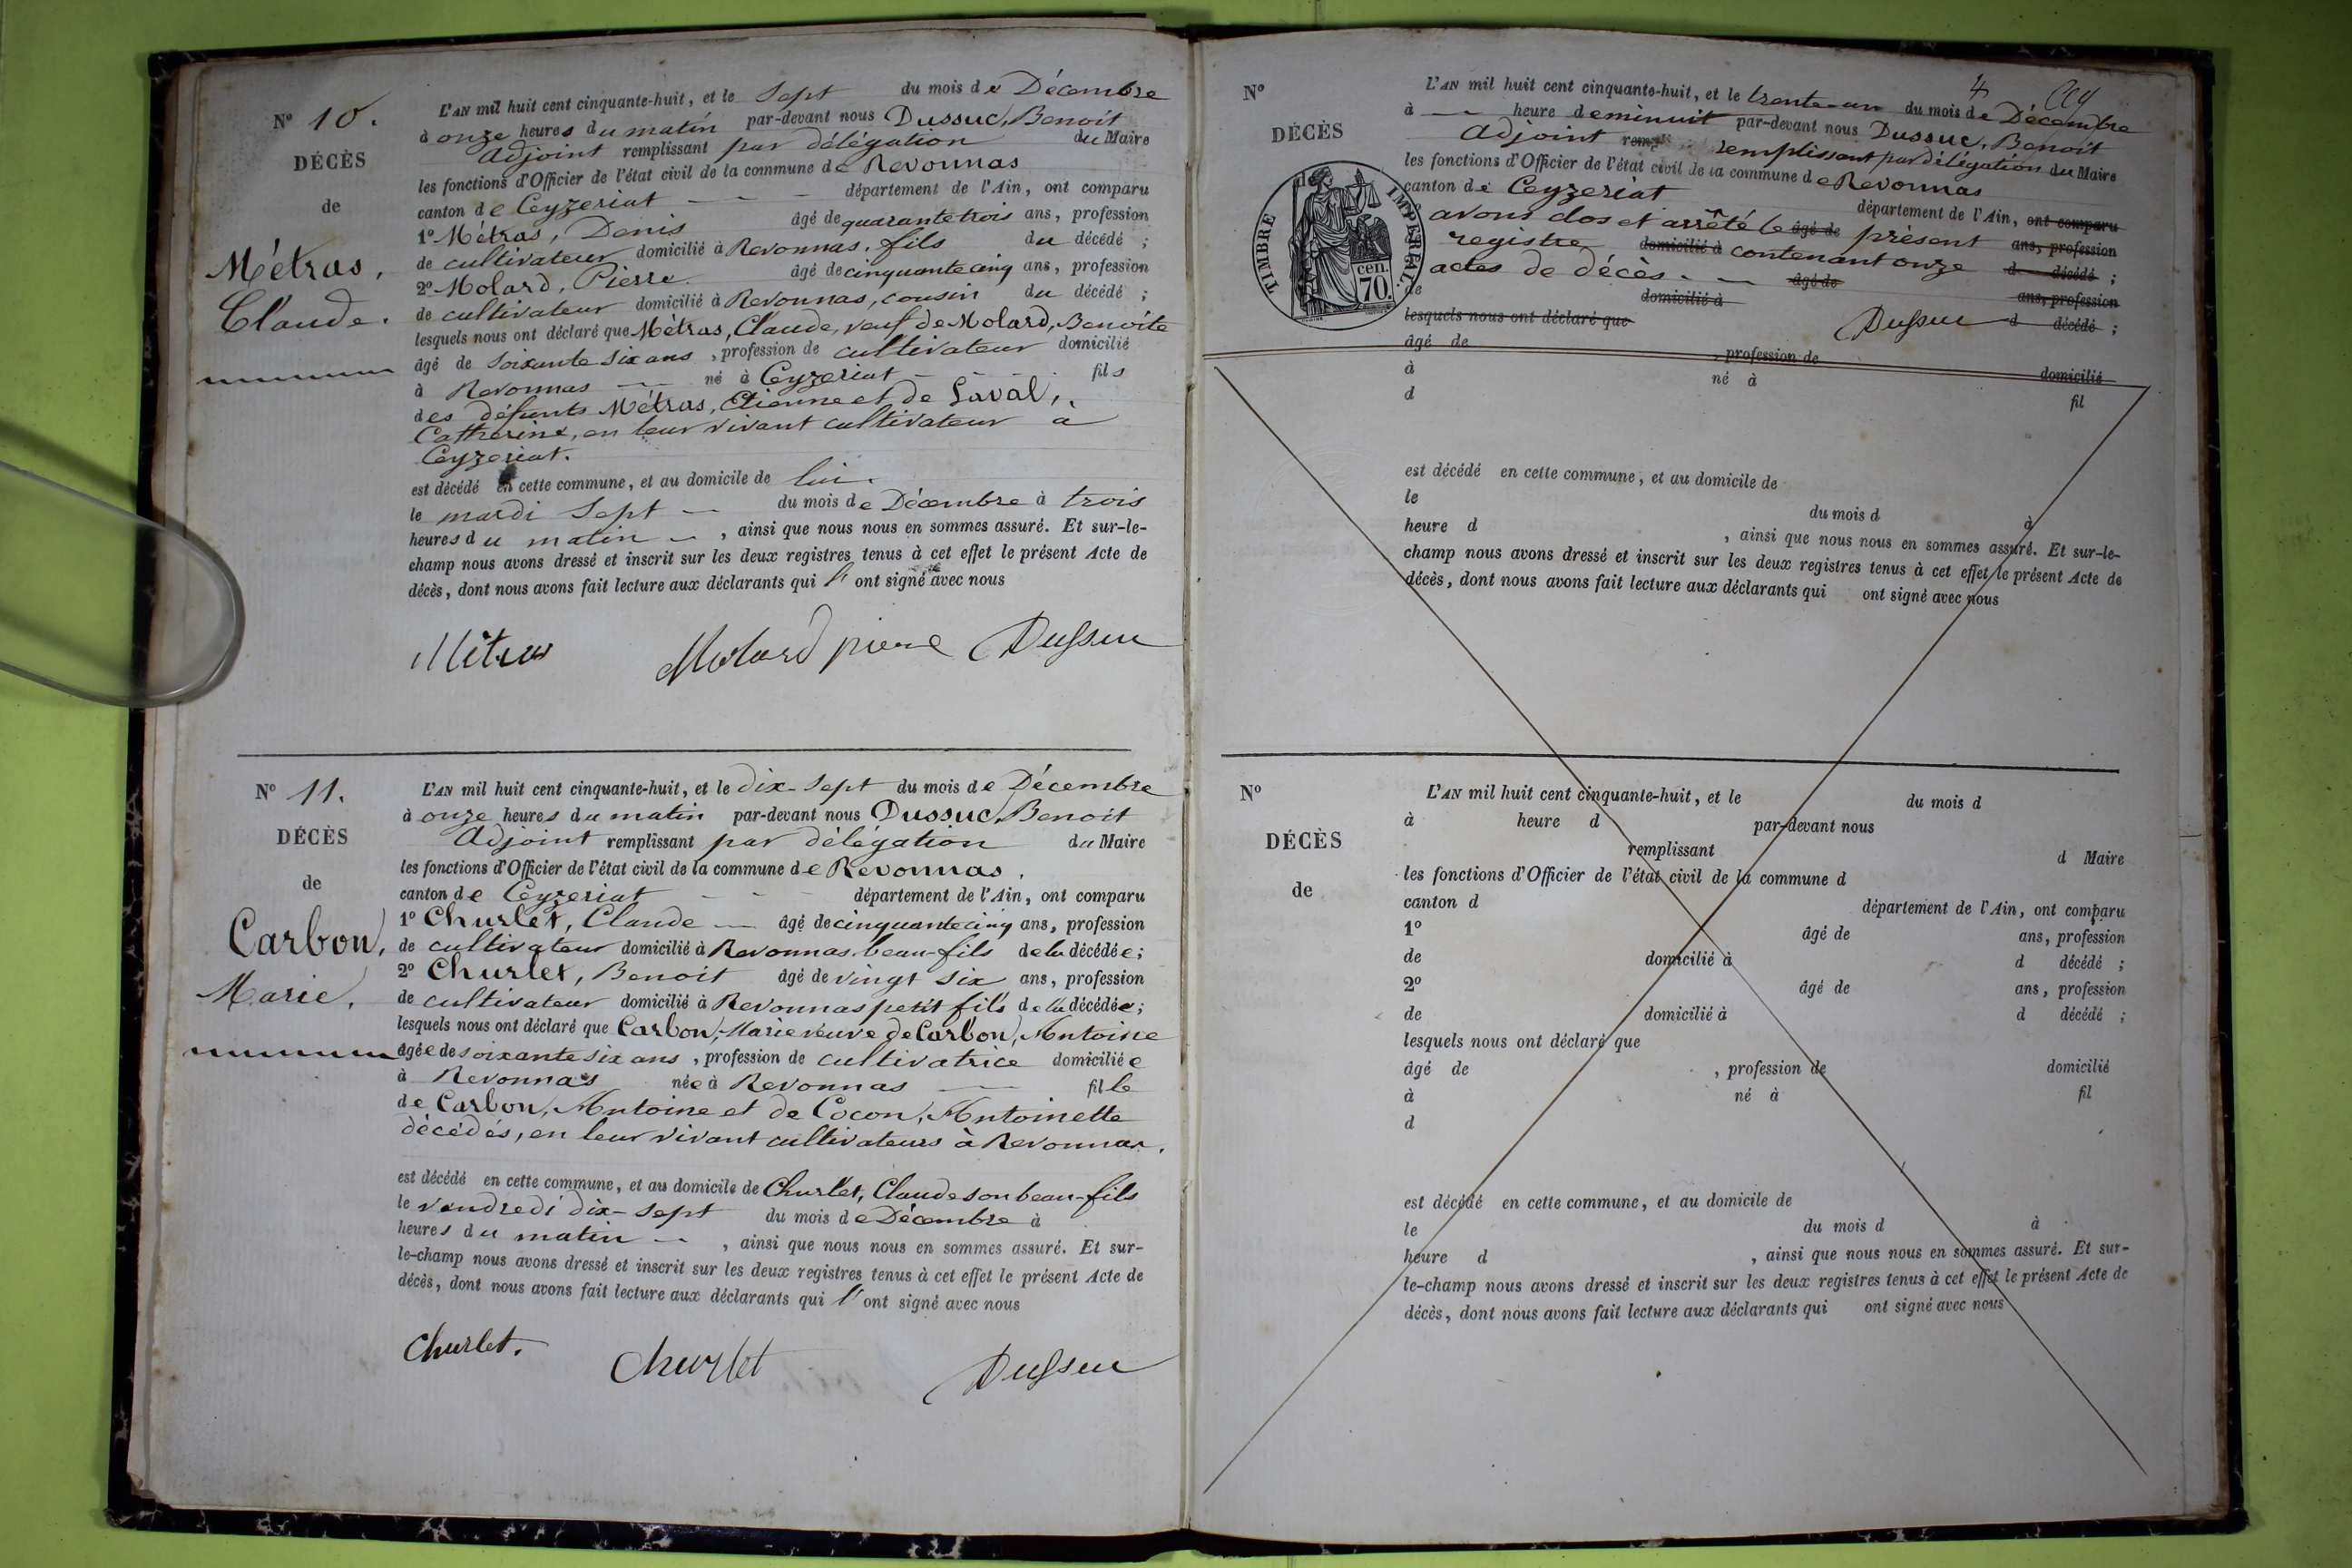 N° 10.
DÉCÈS
de
Métras,
Claude.
L'AN mil huit cent cinquante-huit, et le Sept du mois de Décembre
à onze heures du matin par-devant nous Dussuc, Benoit
Adjoint remplissant par délégation du Maire
les fonctions d'Officier de l'état civil de la commune de Revonnas
canton de Ceyzeriat département de l'Ain, ont comparu
1° Métras, Denis âgé de quarante trois ans, profession
de cultivateur domicilié à Revonnas, fils du décédé ;
2° Molard, Pierre âgé de cinquante cinq ans, profession
de cultivateur domicilié à Revonnas, cousin du décédé ;
lesquels nous ont déclaré que Métras, Claude, veuf de Molard, Benoite
âgé de soixante six ans, profession de cultivateur domicilié
à Revonnas né à Ceyzeriat fils
des défunts Métras, Etienne et de Laval,
Catherine, en leur vivant cultivateur à
Ceyzeriat.
est décédé en cette commune, et au domicile de lui.
le mardi Sept du mois de Décembre à trois
heures du matin, ainsi que nous nous en sommes assuré. Et sur-le-
champ nous avons dressé et inscrit sur les deux registres tenus à cet effet le présent Acte de
décès, dont nous avons fait lecture aux déclarants qui l' ont signé avec nous
Métras Molard pierre Dussuc
N° 11.
DÉCÈS
de
Carbon,
Marie.
L'AN mil huit cent cinquante-huit, et le dix-Sept du mois de Décembre
à onze heures du matin par-devant nous Dussuc, Benoit
Adjoint remplissant par délégation du Maire
les fonctions d'Officier de l'état civil de la commune de Revonnas.
canton de Ceyzeriat département de l'Ain, ont comparu
1° Churlet, Claude âgé de cinquante cinq ans, profession
de cultivateur domicilié à Revonnas, beau-fils de la décédée ;
2° Churlet, Benoit âgé de vingt six ans, profession
de cultivateur domicilié à Revonnas petit fils de la décédée ;
lesquels nous ont déclaré que Carbon, Marie veuve de Carbon, Antoine
âgée de soixante six ans, profession de cultivatrice domiciliée
à Revonnas née à Revonnas fille
de Carbon, Antoine et de Cocon, Antoinette
décédés, en leur vivant cultivateurs à Revonnas.
est décédé en cette commune, et au domicile de Churlet, Claude son beau-fils
le vendredi dix-sept du mois de Décembre à
heures du matin, ainsi que nous nous en sommes assuré. Et sur-
le-champ nous avons dressé et inscrit sur les deux registres tenus à cet effet le présent Acte de
décès, dont nous avons fait lecture aux déclarants qui l' ont signé avec nous
Churlet. Churlet Dussuc
4
N°
DÉCÈS
TIMBRE IMPÉRIAL
70 cen.
L'AN mil huit cent cinquante-huit, et le trente-un du mois de Décembre
à heure de minuit par-devant nous Dussuc, Benoit
Adjoint remplissant par délégation du Maire
les fonctions d'Officier de l'état civil de la commune de Revonnas
canton de Ceyzeriat département de l'Ain, ont comparu
avons clos et arrêté le âgé de présent ans, profession
registre domicilié à contenant onze d décédé ;
actes de décès. âgé de ans, profession
de domicilié à d décédé ;
lesquels nous ont déclaré que Dussuc
âgé de , profession de domicilié
à né à fil
d
est décédé en cette commune, et au domicile de
le du mois d à
heure d , ainsi que nous nous en sommes assuré. Et sur-le-
champ nous avons dressé et inscrit sur les deux registres tenus à cet effet le présent Acte de
décès, dont nous avons fait lecture aux déclarants qui ont signé avec nous
N°
DÉCÈS
de
L'AN mil huit cent cinquante-huit, et le du mois d
à heure d par-devant nous
remplissant d Maire
les fonctions d'Officier de l'état civil de la commune d
canton d département de l'Ain, ont comparu
1° âgé de ans, profession
de domicilié à d décédé ;
2° âgé de ans, profession
de domicilié à d décédé ;
lesquels nous ont déclaré que
âgé de , profession de domicilié
à né à fil
d
est décédé en cette commune, et au domicile de
le du mois d à
heure d , ainsi que nous nous en sommes assuré. Et sur-
le-champ nous avons dressé et inscrit sur les deux registres tenus à cet effet le présent Acte de
décès, dont nous avons fait lecture aux déclarants qui ont signé avec nous